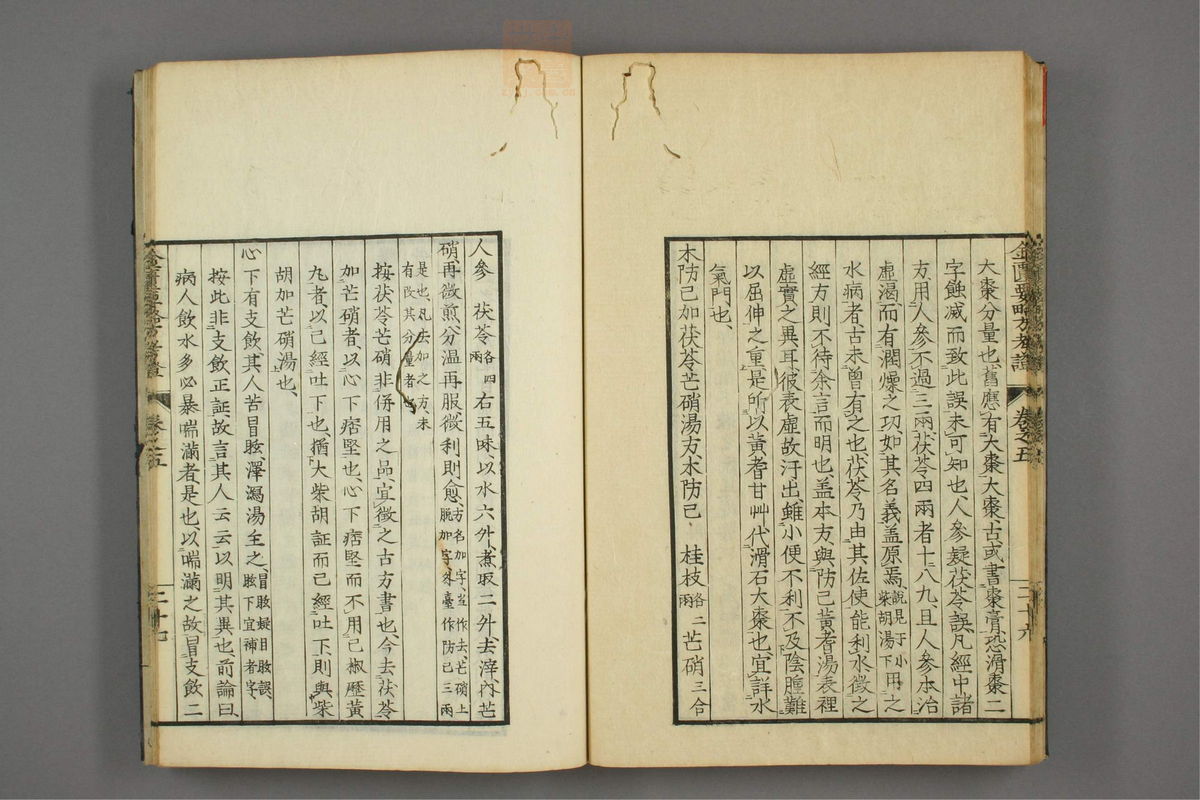 金匱要略方考證 卷之五 三十六
大棗分量也、舊應有大棗、大棗、古或書棗膏、恐滑棗二
字蝕滅而致此誤、未可知也、人參疑茯苓誤、凡經中諸
方、用人參不過三兩、茯苓四兩者十八九、且人參本治
虛渴、而有潤燥之功、如其名義、蓋原焉、說見于小柴胡湯下用之
水病者、古未曾有之也、茯苓乃由其佐使能利水、徵之
經方、則不待余言而明也、蓋本方與防己黃耆湯、表裡
虛實之異耳、彼表虛故汗出、雖小便不利、不及陰腫難
以屈伸之重、是所以黃耆甘艸、代滑石大棗也、宜詳水
氣門也、
木防己加茯苓芒硝湯方、木防己 桂枝各二兩 芒硝三合
人參 茯苓各四兩 右五味以水六升、煮取二升、去滓、內芒
硝、再微煎、分溫再服、微利則愈、方名加字、当作去、芒硝上脫加字、外臺作防己三兩
是也、凡去加之方、未有改其分量者也
按茯苓芒硝、非併用之品、宜徵之古方書也、今去茯苓
加芒硝者、以心下痞堅也、心下痞堅而不用己椒藶黃
丸者、以己經吐下也、猶大柴胡証而已經吐下、則與柴
胡加芒硝湯也、
心下有支飲、其人苦冒眩、澤瀉湯主之、冒眩疑目眩誤、眩下宜補者字、
按此非支飲正証、故言其人云云、以明其異也、前論曰、
病人飲水多、必暴喘滿者、是也、以喘滿之故、冒支飲二
金匱要略方考證 卷之五 三十七